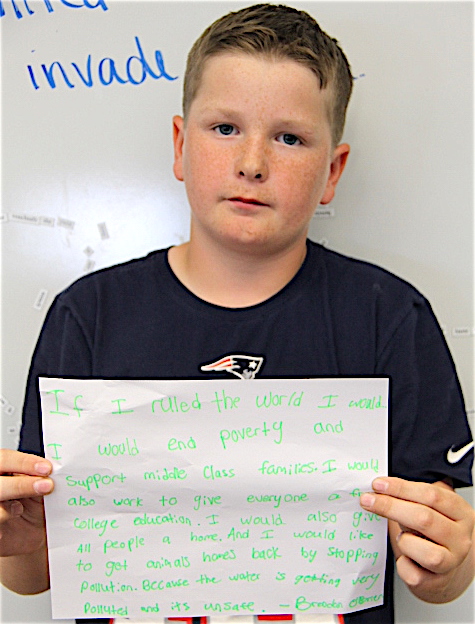 invade
If I ruled the world I would
I would end poverty and
support middle class families. I would
also work to give everyone a
college education. I would also give
All people a home. And I would like
to get animals homes back by stopping
Pollution. Because the water is getting very
Polluted and its unsafe. -